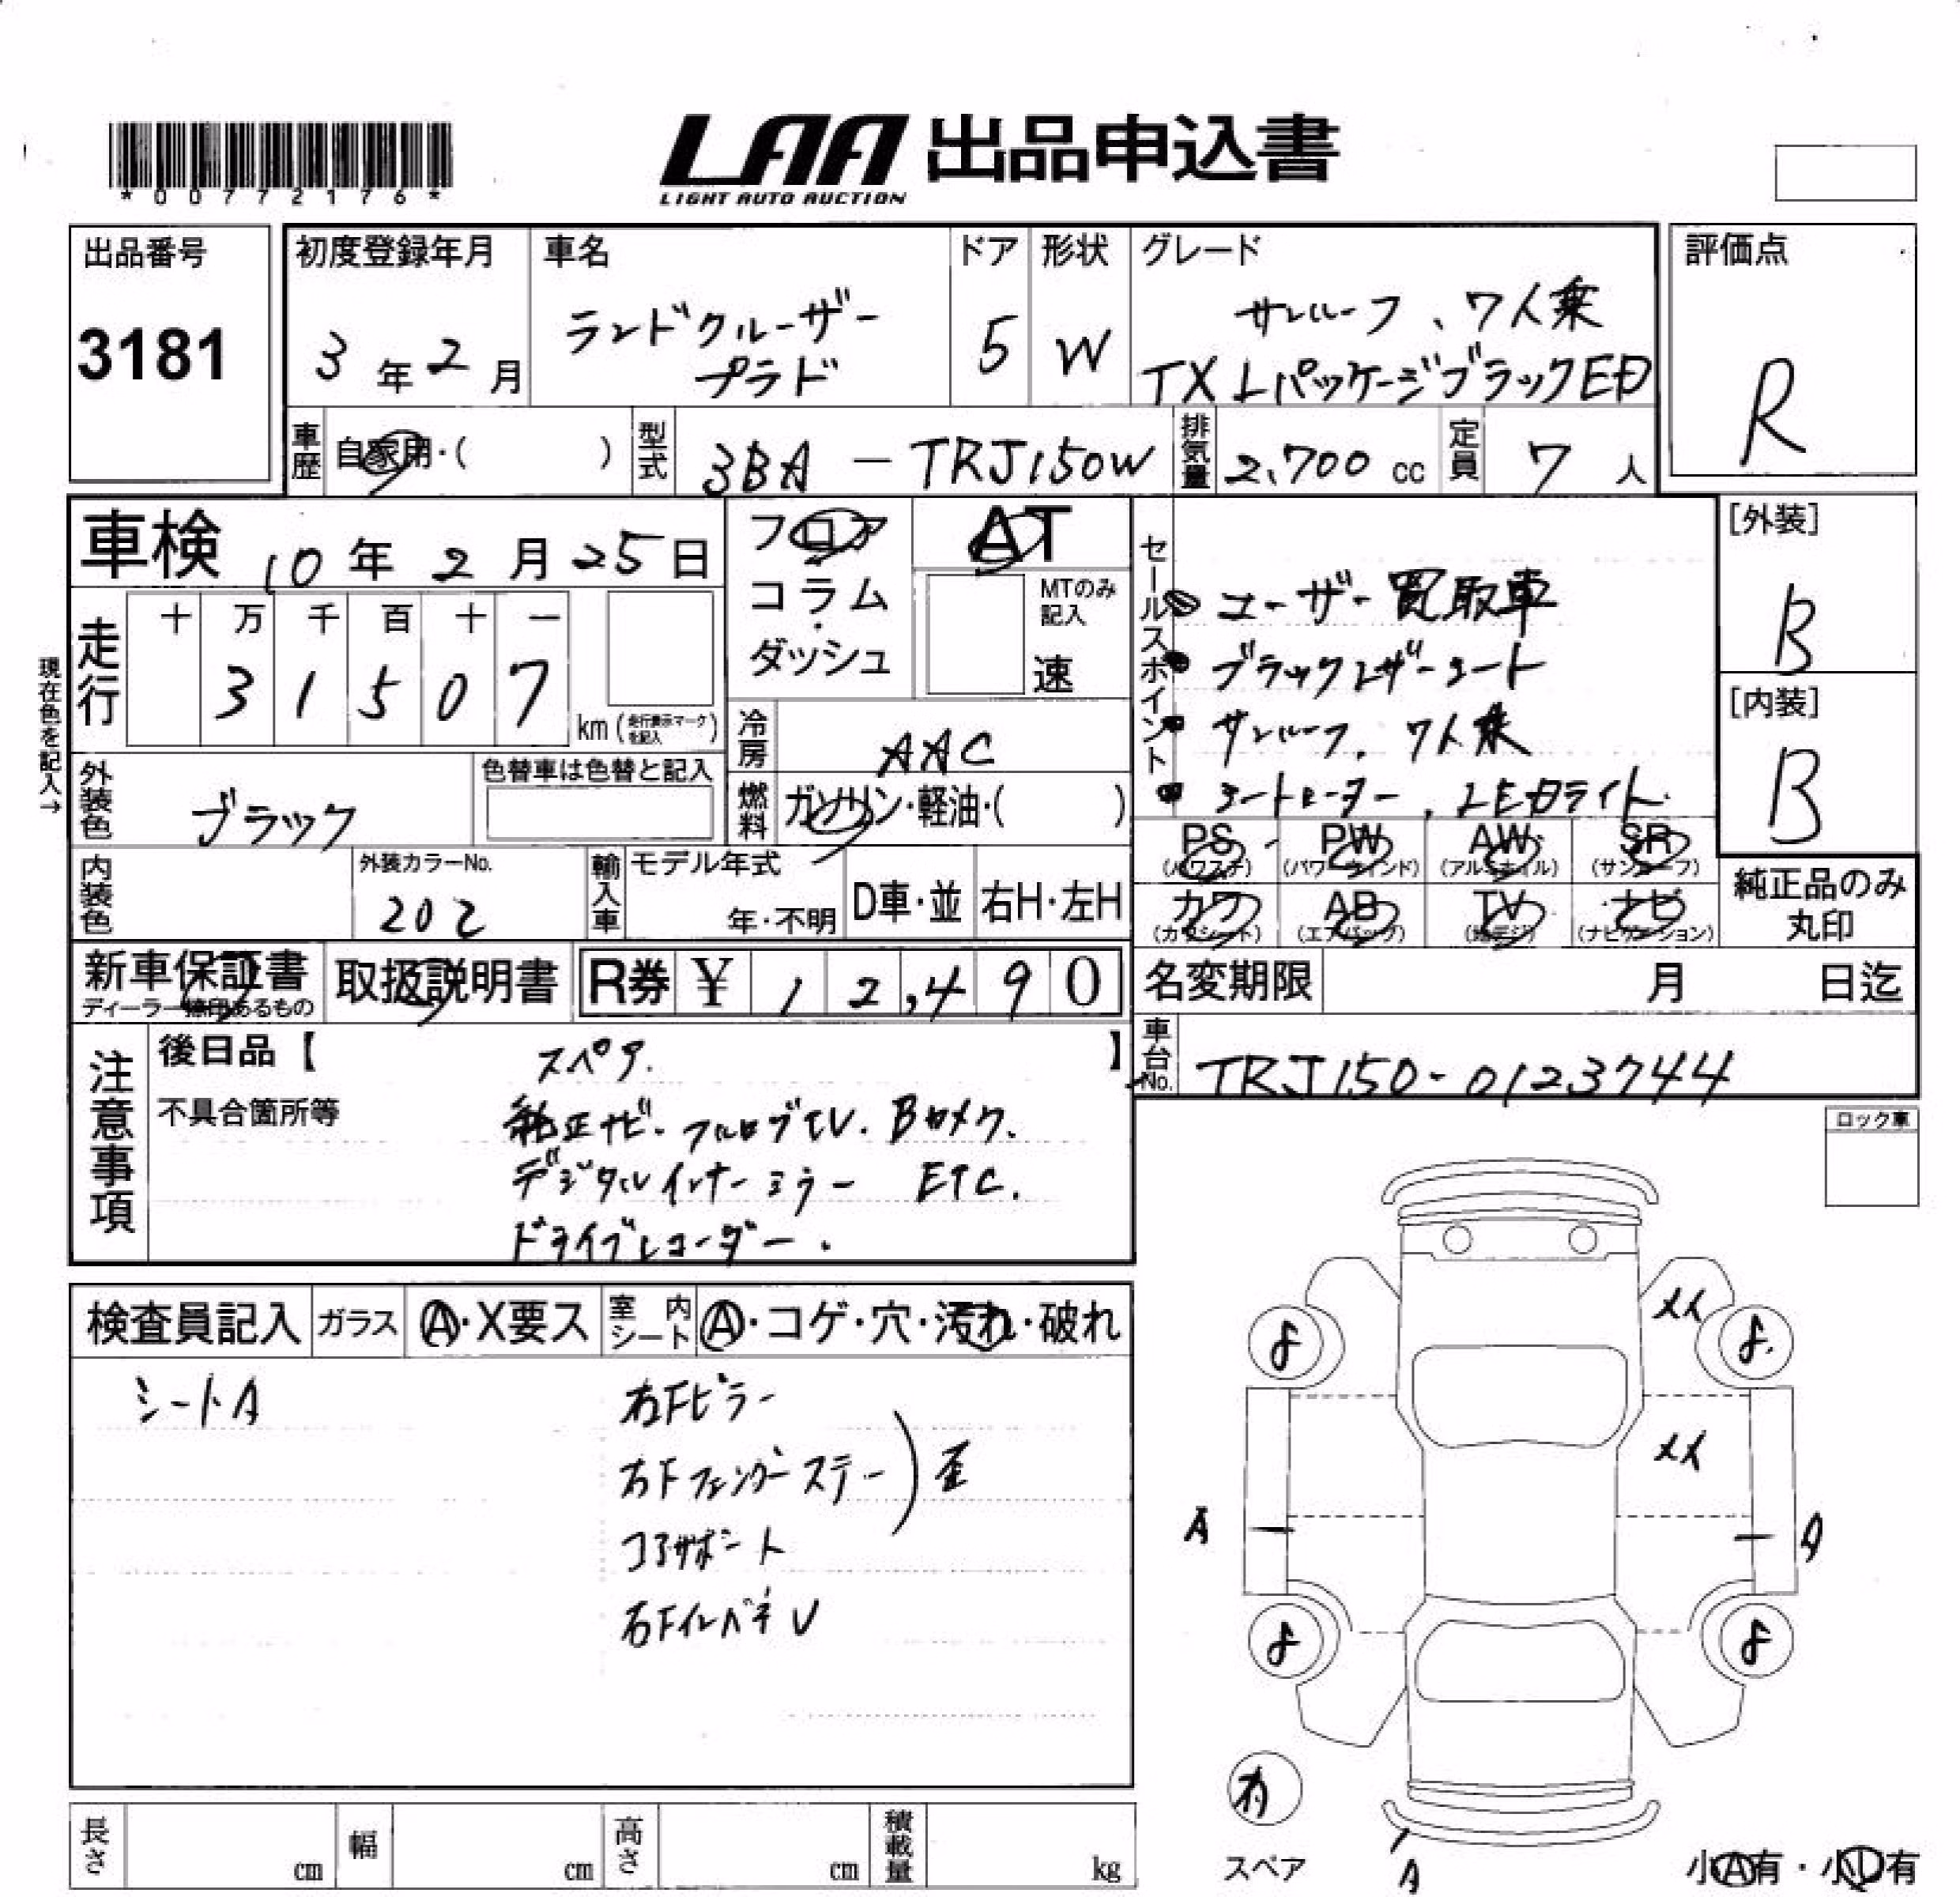 *00772176*
LAA 出品申込書
LIGHT AUTO AUCTION
出品番号
3181
初度登録年月
3年2月
車名
ランドクルーザー
プラド
ドア
5
形状
W
グレード
サンルーフ、7人乗
TX LパッケージブラックED
評価点
R
車歴
自家用・( )
型式
3BA-TRJ150W
排気量
2,700 cc
定員
7人
車検 10年2月25日
走行
十 万 千 百 十 一
3 1 5 0 7
km(走行表示マークを記入)
現在色を記入→
外装色
ブラック
色替車は色替と記入
内装色
外装カラーNo.
202
フロア
コラム
・
ダッシュ
AT
MTのみ
記入
速
冷房
AAC
燃料
ガソリン・軽油・( )
輸入車
モデル年式
年・不明
D車・並
右H・左H
セールスポイント
ユーザー買取車
ブラックレザーシート
サンルーフ、7人乗
シートヒーター、LEDライト
PS
(パワステ)
PW
(パワーウィンド)
AW
(アルミホイル)
SR
(サンルーフ)
カワ
(カワシート)
AB
(エアバッグ)
TV
(地デジ)
ナビ
(ナビゲーション)
[外装]
B
[内装]
B
純正品のみ
丸印
新車保証書
ディーラー捺印あるもの
取扱説明書
R券 ¥12,490
名変期限 月 日迄
車台No.
TRJ150-0123744
注意事項
後日品【 スペア. 】
不具合箇所等
純正ナビ. フルセグTV. Bカメラ.
デジタルインナーミラー ETC.
ドライブレコーダー.
ロック車
検査員記入
ガラス
A・X要ス
室内
シート
A・コゲ・穴・汚れ・破れ
シートA
右Fピラー
右Fフェンダーステー
歪
コアサポート
右FインパネU
メイ
メイ
A
A
A
有
スペア
小A有・小U有
長さ cm
幅 cm
高さ cm
積載量 kg